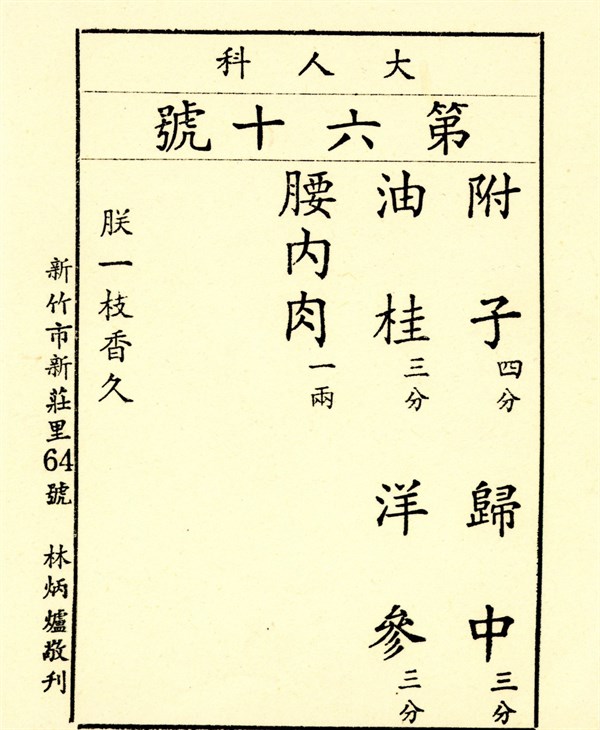 大人科
第六十號
附子四分 歸中三分
油桂三分 洋參三分
腰內肉一兩
朕一枝香久
新竹市新莊里64號 林炳爐敬刋